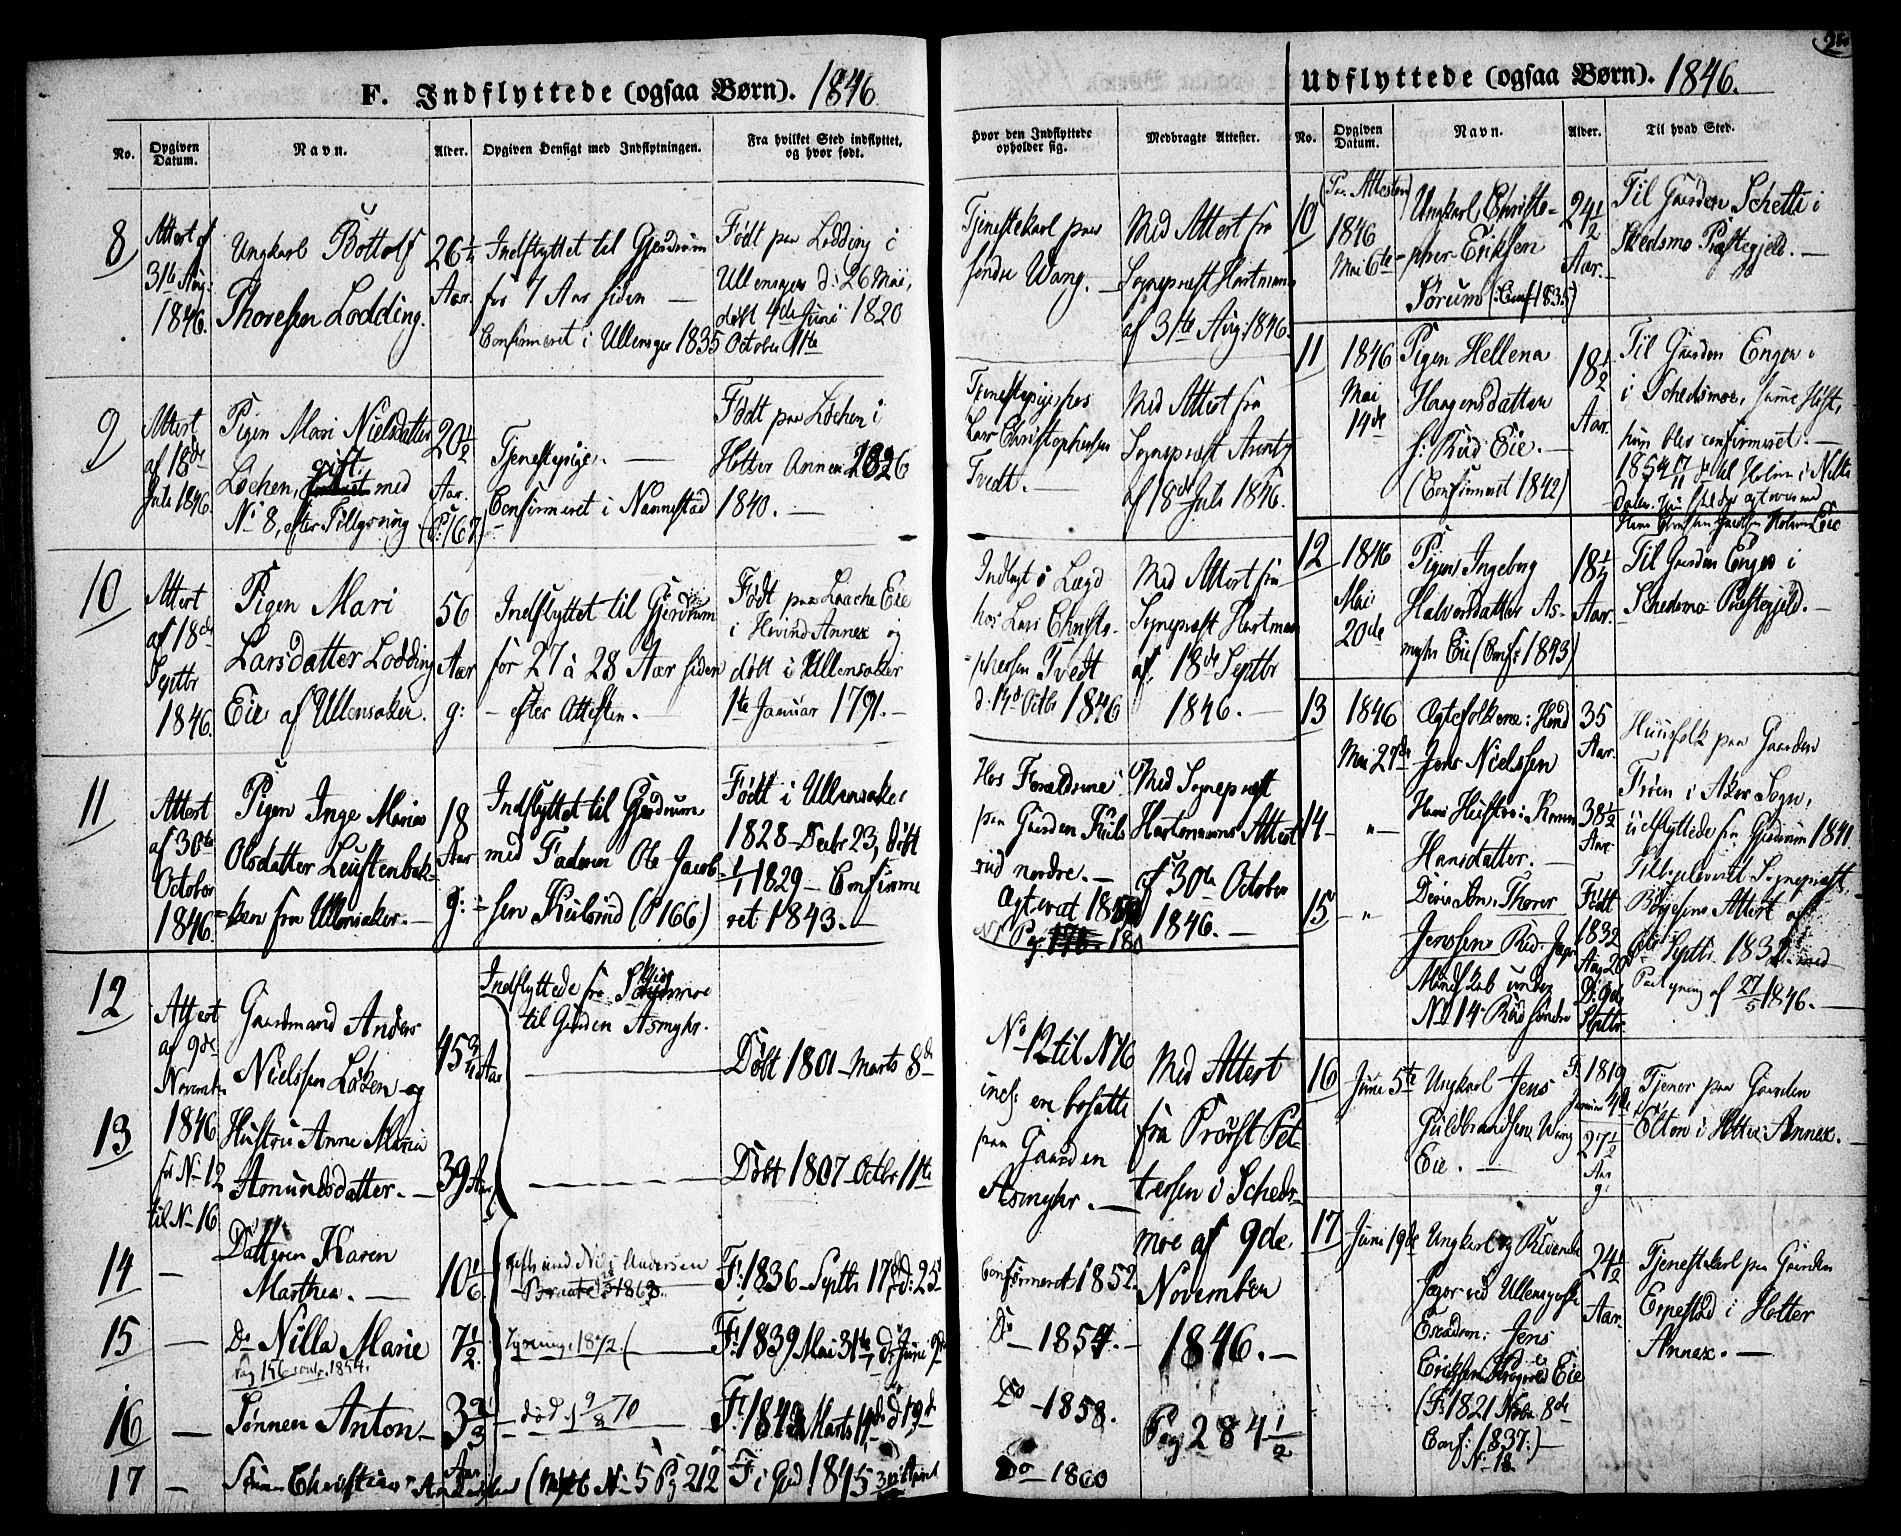 F. Indflyttede (ogsaa Børn). 1846
No.
Opgiven Datum.
Navn.
Alder.
Opgiven Hensigt med Indflytningen.
Fra hvilket Sted indflyttet, og hvor født.
Hvor den Indflyttede opholder sig.
Medbragte Attester.
8
Attest af
31te Aug:
1846.
Ungkarl Bottolf
Thoresen Lodding.
26 1/4
Aar.
Indflyttet til Gjerdrum
for 7 Aar siden —
Confirmeret i Ullensager 1835
Født paa Lodding i
Ullensager d: 26 Mai,
døbt 4de Juni 1820
October 1te
Tjenestekarl paa
søndre Wang. —
Med Attest fra
Sognepræst Hartmann
af 31te Aug: 1846.
9
Attest
af 18de
Juli 1846.
Pigen Mari Nielsdatter
Løchen, gift med
No 8, efter Tillysning
20 1/2
Aar.
(P: 167)
Tjenestepige. —
Confirmeret i Nannestad
Født paa Løchen i
Holter Annex 1826
1840. —
Tjenestepige hos
Lars Christophersen
Tvedt. —
Med Attest fra
Sognepræst
af 18de Juli 1846.
10
Attest
af 18de
Septbr
1846.
Pigen Mari
Larsdatter Lodding
Eie af Ullensaker.
56
Aar
g:
Indflyttet til Gjerdrum
for 27 à 28 Aar siden
— efter Attesten. —
Født paa Laache Eie
i Hovind Annex og
døbt i Ullensaker
1te Januar 1791. —
Indlagt i Lægd
hos Lars Christo-
phersen Tvedt
d: 14de Octbr 1846
Med Attest fra
Sognepræst Hartman
af 18de Septbr
1846. —
11
Attest
af 30te
October
1846
Pigen Inge Marie
Olsdatter Leustenbak-
ken fra Ullensaker. —
18
Aar
g:
Indflyttet til Gjerdrum
med Faderen Ole Jacob-
sen Kulsrud (P 166)
Født i Ullensaker
1828 Decbr 23, døbt
1/1 1829 — Confirme
ret 1843. —
Hos Forældrene
paa Gaarden Kuls
rud nordre. —
Med Sognepræst
Hartmanns Attest
af 30te October
1846. —
12
Attest
af 9de
Novembr
1846
for No 12
til No 16
Gaardmand Anders
Nielssen Løken og
45 3/4 Aar
Indflyttede fra
til Gaarden Asmyhr.
Døbt 1801 Marts 8de
No 12 til No 16
incl: ere bosatte
paa Gaarden
Asmyhr. —
Med Attest
fra Provst Pet-
tersen i Scheds-
moe af 9de
November
1846. —
Pag 284 1/2
13
Hustru Anne Maria
Amundsdatter. —
39 Aar
Døbt 1807 Octbr 11te
14 —
Datteren Karen
Marthea. —
10 1/6
F: 1836 Septbr 17de d: 25
Confirmeret 1852.
15 —
Do Nilla Marie
Pag 156 1854.
7 1/2
1872
F: 1839 Mai 31te d: Juni 9de
Do — 1854. —
16 —
Sønnen Anton —
3 2/3
Aar
død 9/8 70
F: 1843 Marts 14de d: 19de
Do — 1858.
17 —
Sønnen Christian
No 5 Pag 212
F: i Gjd 1845
Do 1860
Udflyttede (ogsaa Børn). 1846.
No.
Opgiven Datum.
Navn.
Alder.
Til hvad Sted.
10
(Pr. Attesten)
1846
Mai 6te
Ungkarl Christo-
pher Eriksen
Sørum (: Conf: 1835)
24 1/2
Aar.
Til Gaarden Schetti i
Skedsmo Præstegjeld. —
11
1846
Mai
14de
Pigen Hellena
Haagensdatter
f: Rud Eie. —
(Confirmeret 1842)
18 1/2
Aar.
Til Gaarden Enger
i Schedsmoe, samme Høst,
hun blev confirmeret. —
12
1846
Mai
20de
Pigen Ingeborg
Halvorsdatter As-
myhr Eie (Conf: 1843)
18 1/2
Aar.
Til Gaarden Enger i
Schedsmo Præstegjeld. —
13
1846
Mai 27de
Ægtefolkene: Huusmd
Jens Nielssen
35
Aar.
Huusfolk paa Gaarden
i Aker Sogn,
udflyttede fra Gjerdrum 1841.
Tilbageleveret Sognepræst
Attest af
Septbr 1832 med
Paategning af 27/5 1846. —
14 — " —
Hans Hustru: Karen
Hansdatter. —
38 1/2
Aar
15 — "
Deres Søn: Thorer
Jenssen
No 14 Rud søndre
Født
1832
Aug 20
D: 9de
Septbr
16
Juni 5te
Ungkarl Jens
Guldbrandsen Wang
Eie. —
F: 1819
27 1/2
Aar
g:
Tjener paa Gaarden
Elton i Holter Annex. —
17
Juni 19de
Ungkarl og Ridende
Jæger ved Ullensagerske
Escadron: Jens
Erichsen Eie
(F: 1821 Novbr 8de
Conf: 1837:) —
No 18
24 1/2
Aar.
Tjenestekarl paa Gaarden
Erpestad i Holter
Annex. —